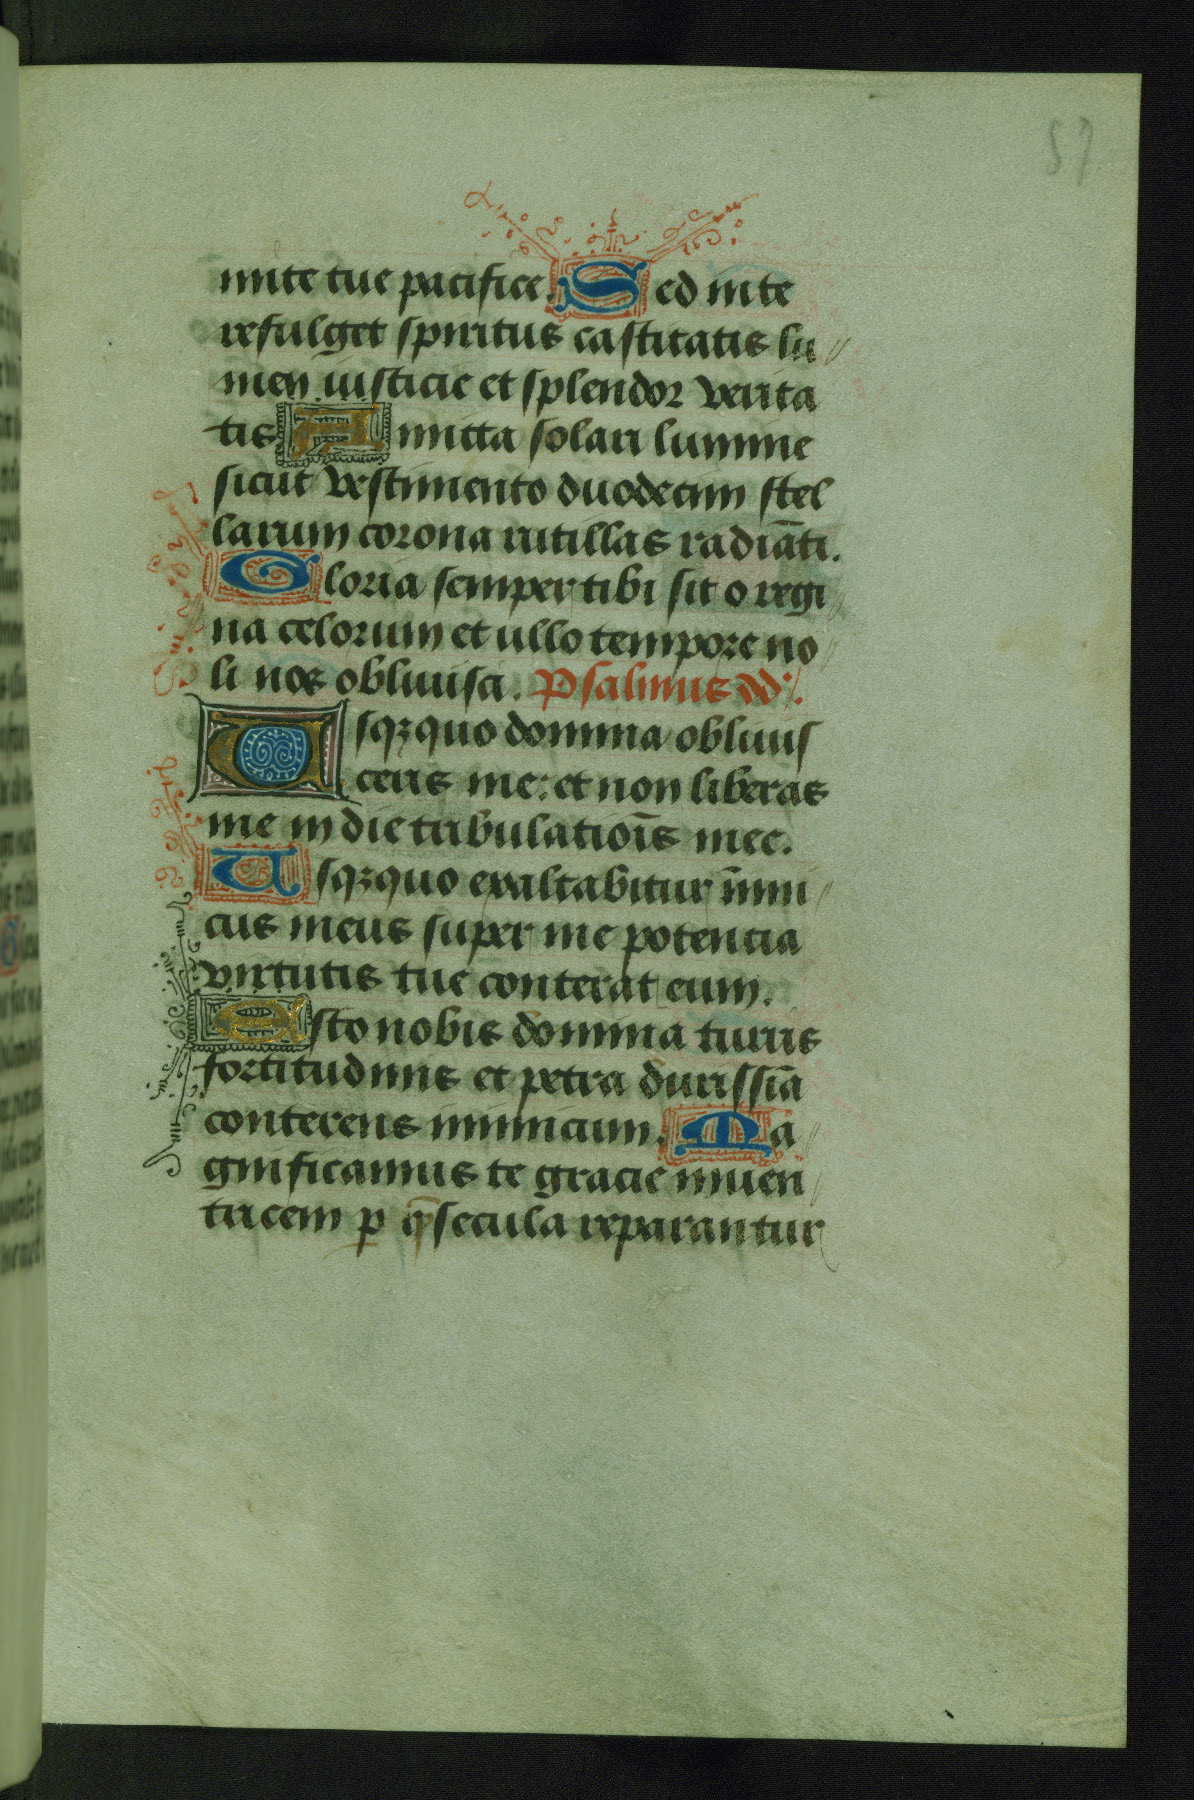 57
mite tue pacifice. Sed in te
refulget spiritus castitatis lu
men iusticie et splendor verita
tis Amicta solari lumine
sicut vestimento duodecim stel
larum corona rutillas radiāti.
Gloria semper tibi sit o regi
na celorum et ullo tempore no
li nos obliuisci. Psalmus dd.
Usqꝫquo domina obliuis
ceris me: et non liberas
me in die tribulatiōis mee.
Usqꝫquo exaltabitur inimi
cus meus super me potencia
virtutis tue conterat eum.
Esto nobis domina turris
fortitudinis et petra durissīa
conterens inimicum. Ma
gnificamus te gracie inuen
tricem p q̄ secula reparantur